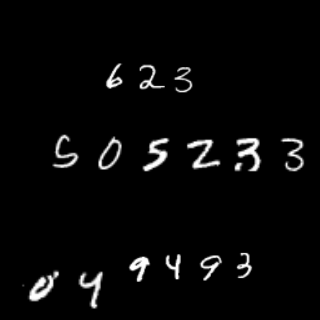 623
505233
049493